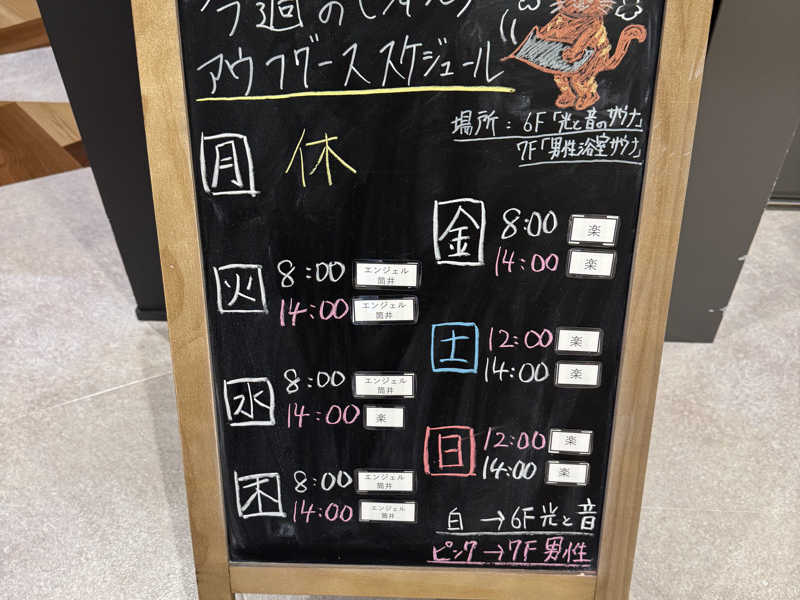 今週の
アウフグース スケジュール
場所：6F「光と音のサウナ」
7F「男性浴室サウナ」
月 休
火 8:00 エンジェル筒井
14:00 エンジェル筒井
水 8:00 エンジェル筒井
14:00 楽
木 8:00 エンジェル筒井
14:00 エンジェル筒井
金 8:00 楽
14:00 楽
土 12:00 楽
14:00 楽
日 12:00 楽
14:00 楽
白→6F光と音
ピンク→7F男性